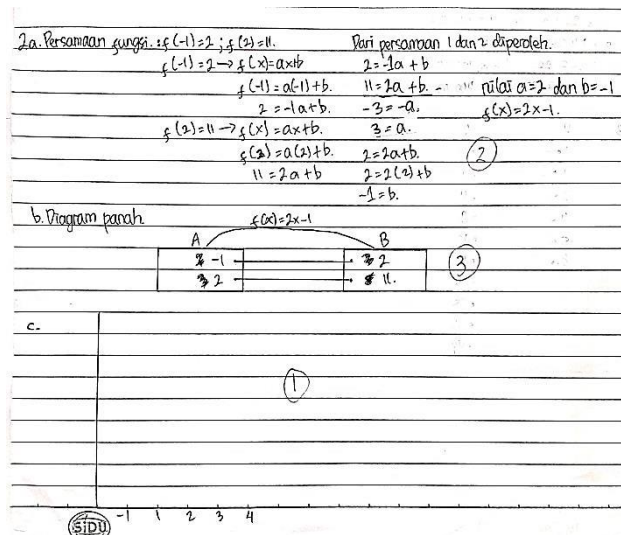 2a. Persamaan fungsi : f(-1)=2 ; f(2)=11.
f(-1)=2 → f(x)=ax+b
f(-1)=a(-1)+b.
2=-1a+b.
f(2)=11 → f(x)=ax+b.
f(2)=a(2)+b.
11=2a+b
Dari persamaan 1 dan 2 diperoleh.
2=-1a+b
11=2a+b. -
-3=-a.
3=a.
2=2a+b.
2=2(2)+b
-1=b.
nilai a=2 dan b=-1
f(x)=2x-1.
2
b. Diagram panah
f(x)=2x-1
A B
-1 2
2 11.
3
c.
1
-1 1 2 3 4
SIDU